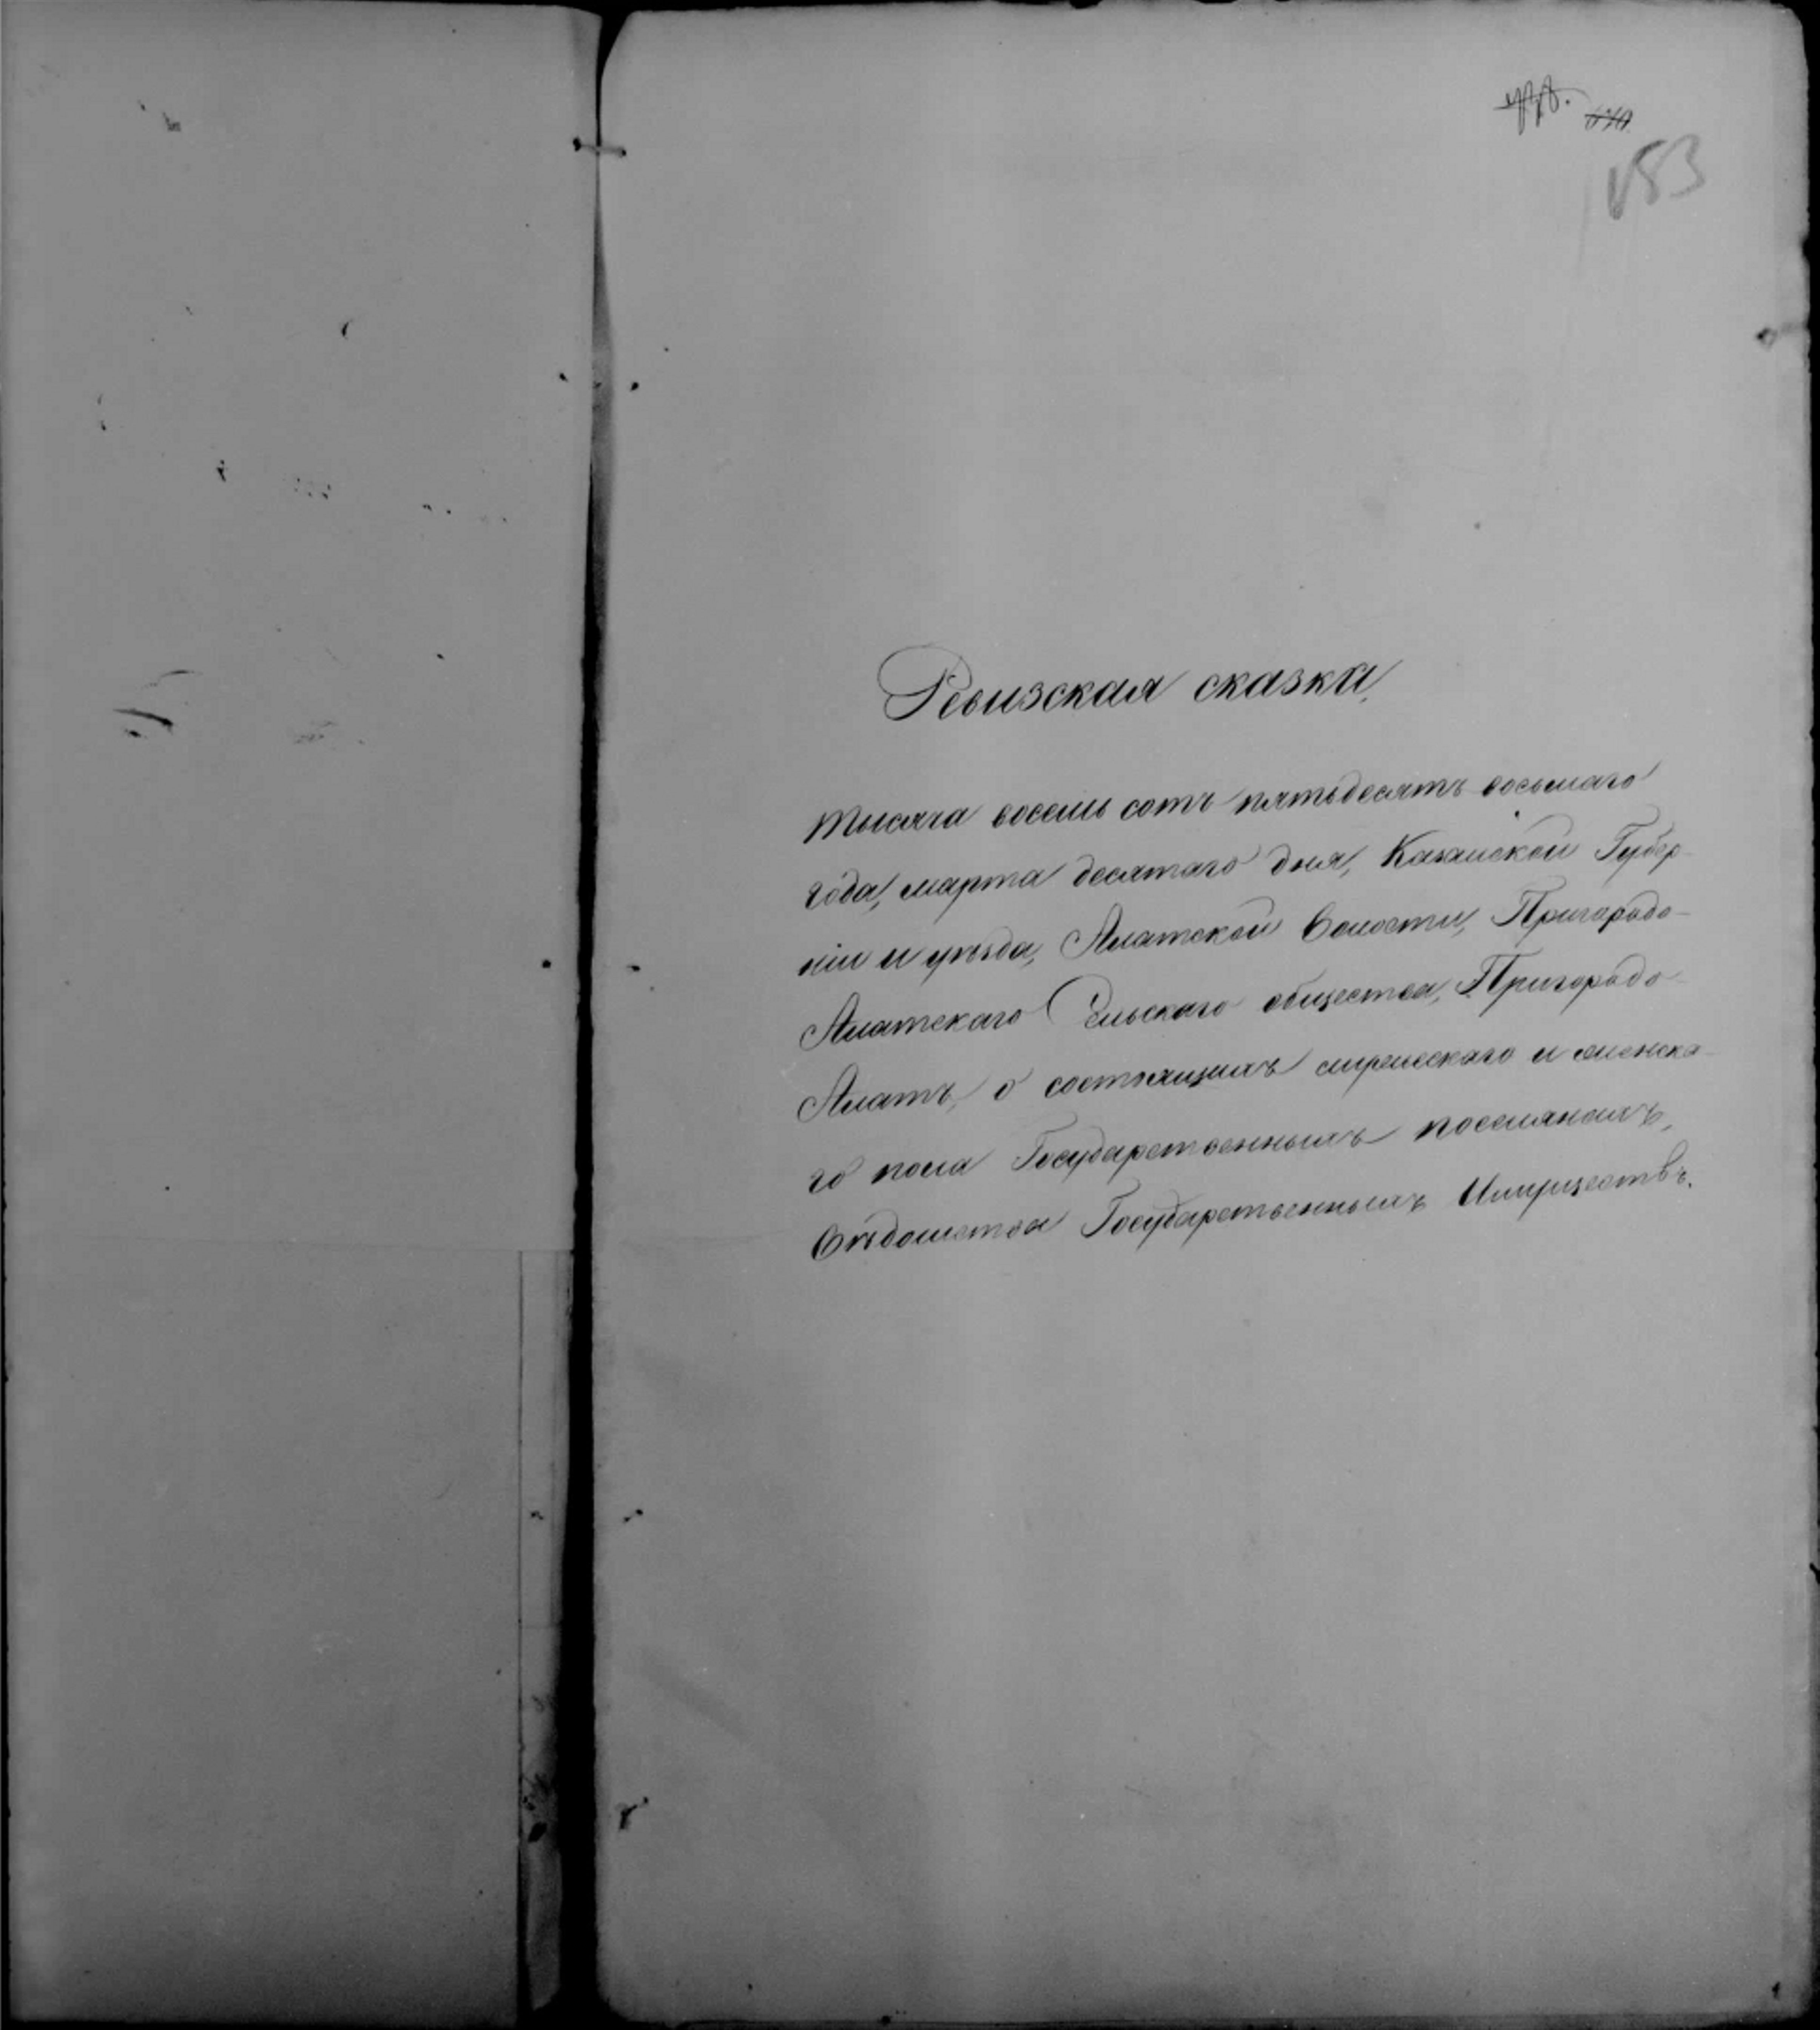 183
Ревизская сказка
Тысяча восемь сотъ пятьдесятъ восьмаго
года, марта десятаго дня, Казанской Губер-
ніи и уѣзда, Алатской Волости, Пригородо-
Алатскаго Сельскаго общества, Пригородо-
Алатъ, о состоящихъ мужескаго и женска-
го пола Государственныхъ поселянахъ,
Вѣдомства Государственныхъ Имуществъ.